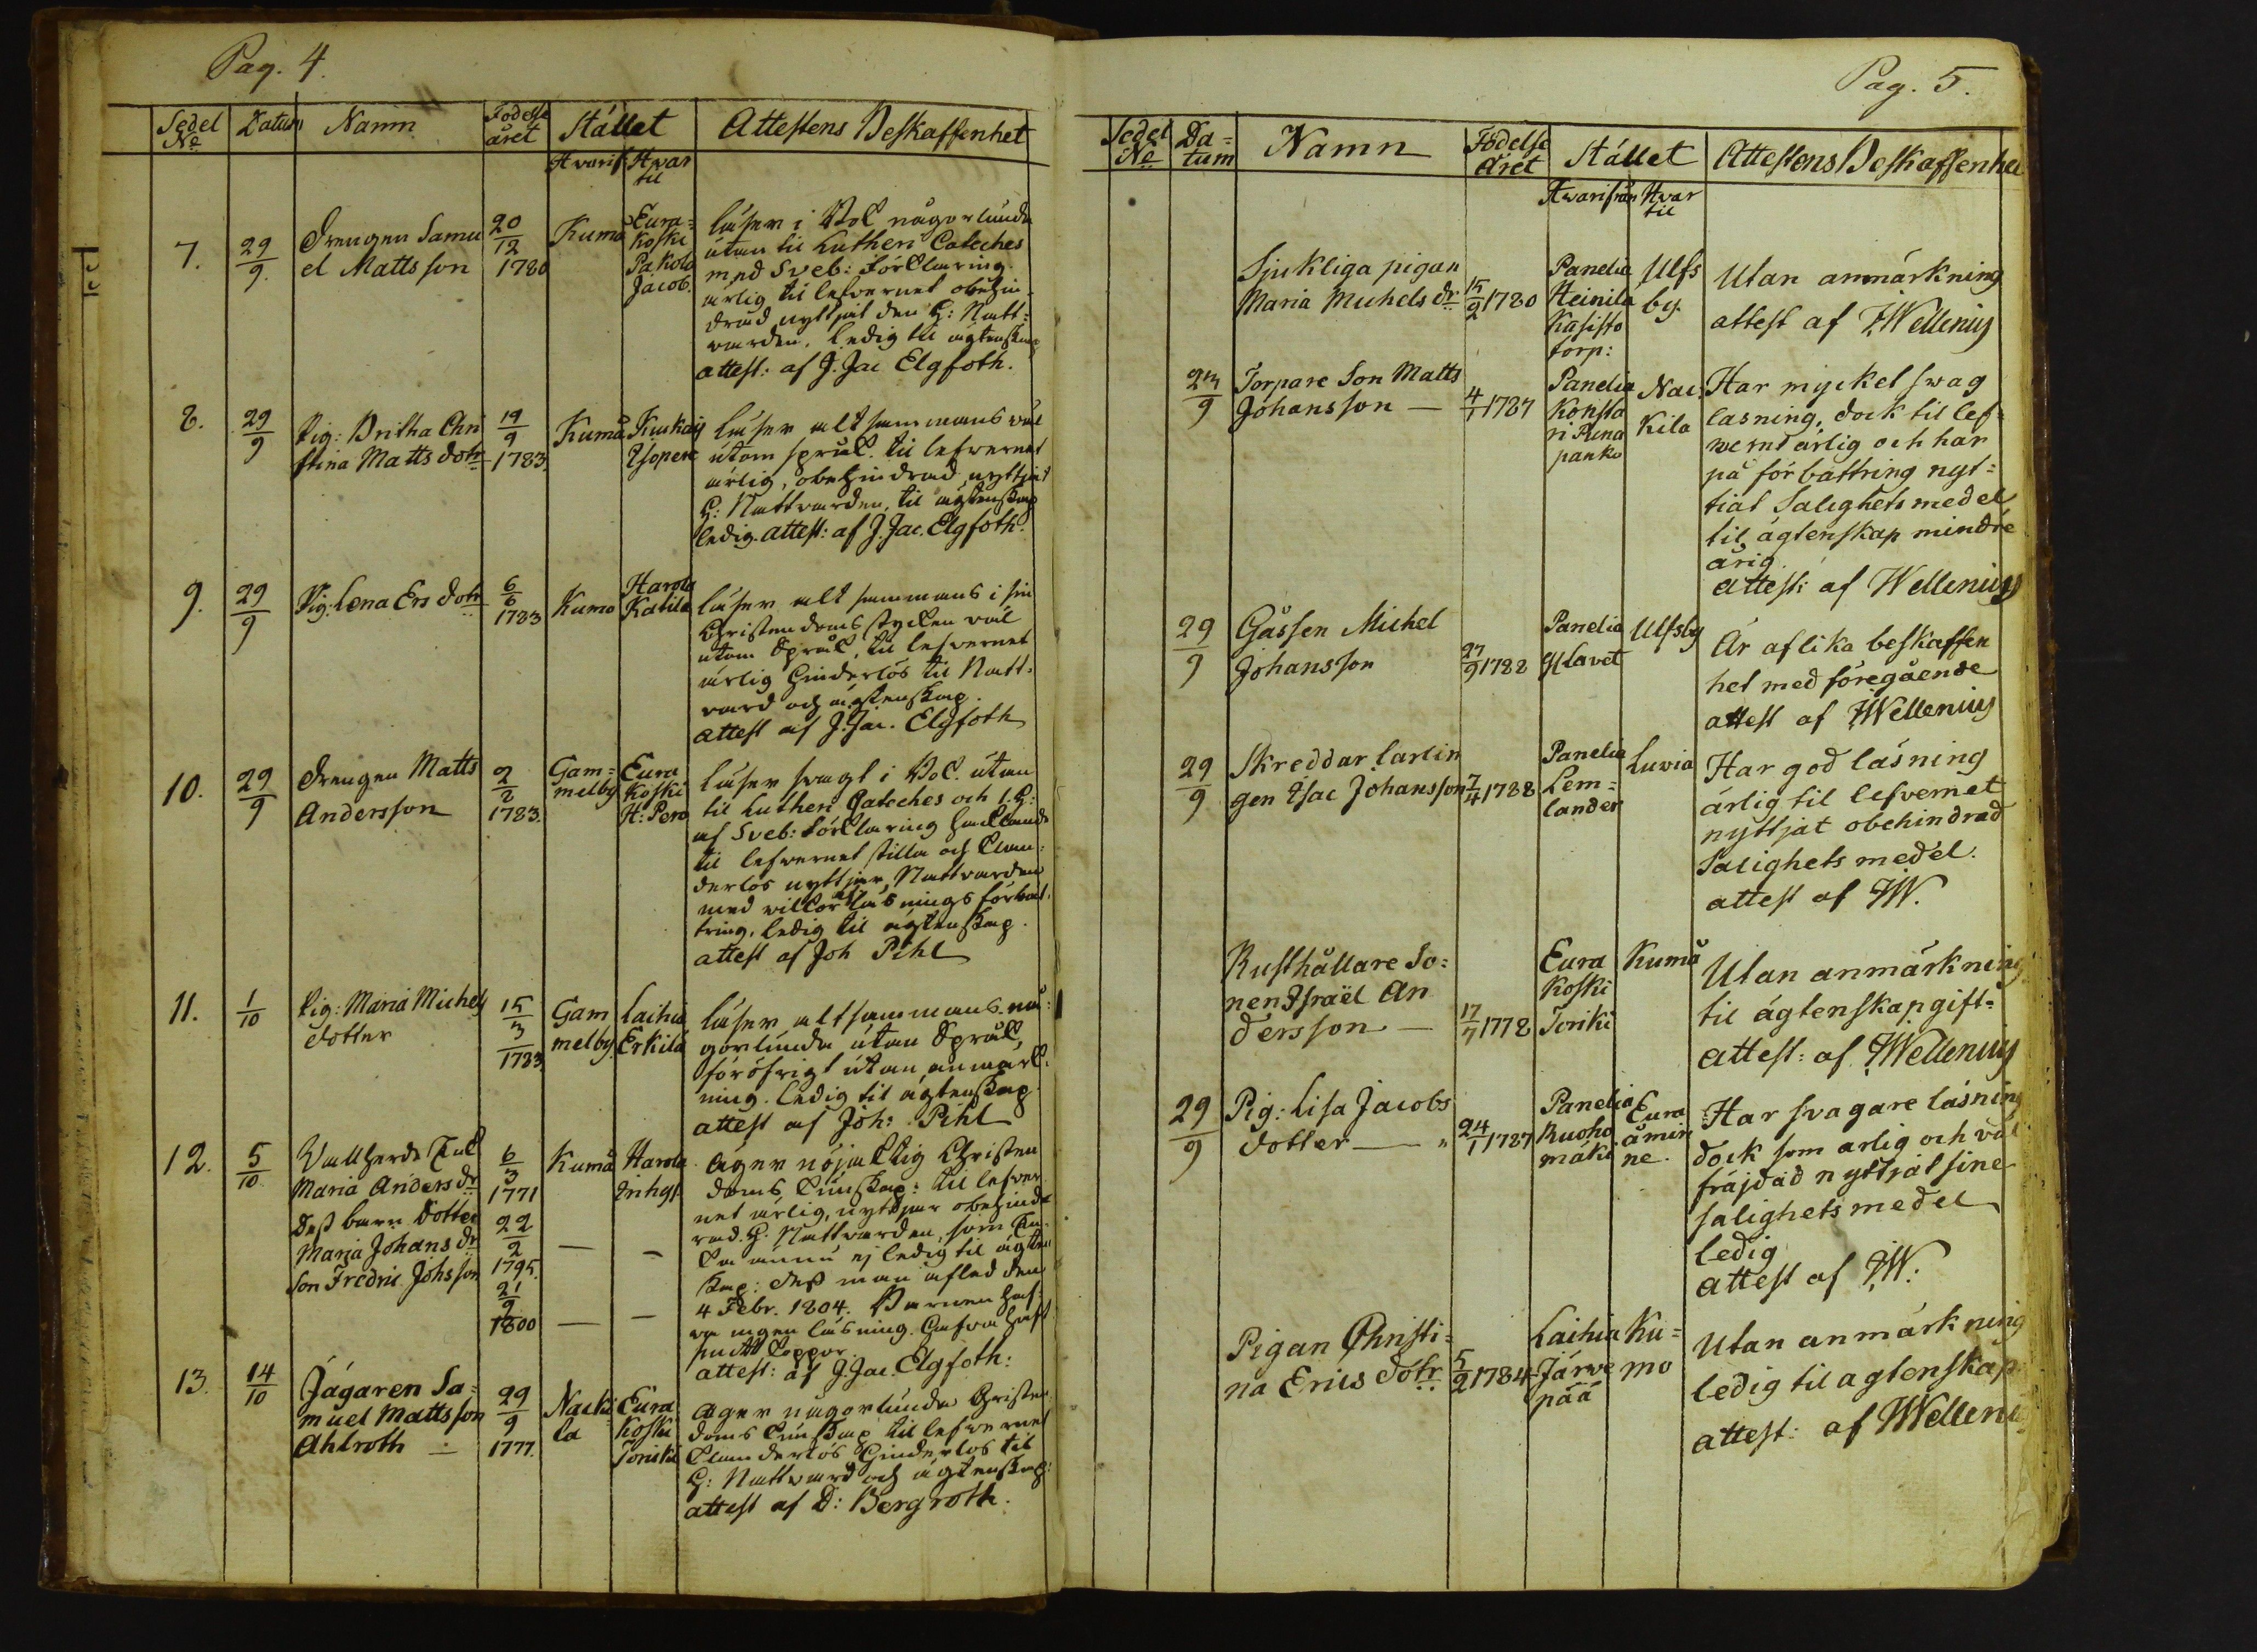 Pag. 4.
Sedel No
Datum
Namn
Födelse året
Stället
Attestens Beskaffenhet
Hvarifr
Hvar til
7.
29/9.
Drengen Samu
el Mattsson
20/12
1780
Kumo
Eura=
koski
Pakola
Jacob.
läser i Bok någorlunda
utan til Lutheri Cateches
med Sveb: Förklaring.
ärlig til lefvernet obehin=
drad nyttjat den H: Natt=
varden. Ledig til ägtenskap
attest: af J. Jac Elgfoth.
8.
29/9
Pig: Britha Chri
stina Matts dotr
19/9
1783.
Kumå
läser alt sammans väl
utom språk. til lefvernet
ärlig, obehindrad nyttjat
H: Nattvarden, til ägtenskap
ledig. attest: af J. Jac. Elgfoth.
9.
29/9
Pig: Lena Ers dotr
6/6
1783
Kumo
Harola
Katila
läser alt sammans i sin
Christendoms stycken väl
utom Språk, til lefvernet
ärlig hinderlös til Natt=
vard och ägtenskap.
attest af J. Jac. Elgfoth
10.
29/9
Drengen Matts
Andersson
2/2
1783.
Gam=
melby
Eura
koski
H: Pero
läser svagt i Bok. utan
til Lutheri Cateches och 1. H:
af Sveb: Förklaring hacklande
til lefvernet stilla och klan=
derlös nyttjar Nattvarden
med vilkor af läsnings förbät=
tring. ledig til ägtenskap.
attest af Joh Pihl
11.
1/10
Pig: Maria Michels
dotter
15/3
1783.
Gam
melby.
Laihia
Erkilä
läser altsammans nå=
gorlunda utan Språk,
föröfrigt utan anmärk=
ning. Ledig til ägtenskap.
attest af Joh: Pihl
12.
5/10
Maria Anders dr
Dess barn Dotter
Maria Johans dr
Son Fredric Johsson
6/3
1771
22/2
1795.
21/9
1800
Kumå
Harola
äger nöjacktig Christen
doms kunskap: til lefver
net ärlig, nyttjar obehind
rad. H. Nattvarden, som En=
ka ännu ej ledig til ägten
skap: dess man afled den
4 Febr. 1804. Barnen haf=
va ingen läsning. Hafva haft
koppor.
attest: af J. Jac. Elgfoth:
13.
14/10
Jägaren Sa=
muel Mattsson
Ahlroth —
29/9
1777.
Nacki
la
Eura
koski
äger någorlunda Christen
doms kunskap til lefvernet
klanderlös hinderlös til
H: Nattvard och ägtenskap:
attest af D: Bergroth.
Pag. 5.
Sedel No
Da=
tum
Namn
Födelse
året
Stället
Attestens Beskaffenhet
Hvarifrån
Hvar
til
Sjukliga pigan
Maria Michels dr
15/2 1780
Panelia
Heinila
Kasisto
torp:
Ulfs
by.
Utan anmärkning
attest af JWellenius
Torpare Son Matts
Johansson —
4/1 1787
Panelia
Nac
kila
Har mycket swag
lasning, dock til lef=
wernt ärlig och har
på förbättring nyt=
tiat Salighets medel
til ägtenskap mindre
årig.
attest: af Wellenius
29/9
Gåssen Michel
Johansson
27/9 1788
Panelia
Ulfsby
Är aflika beskaffen
het med föregående
attest af JWellenius
29/9
Skreddar Larlin
gen Isac Johansson
7/4 1788
Panelia
Lem=
lander
Luvia
Har god läsning
ärlig til lefvernet
nyttjat obehindrad
Salighets medel.
attest af JW.
Rusthållare So=
nen Israël An
dersson —
17/7 1778
Eura
koski
Kumå
Utan anmärkning
til ägtenskap gift=
attest: af JWellenius
29/9
Pig: Lisa Jacobs
dotter —
24/1 1787
Panelia
Ruoho
mäki
Eura
åmin
ne.
Har svagare läsning
dock som arlig och väl
fräjdad nyttjat sine
salighets medel
ledig
attest af JW.
Pigan Christi=
na Erics dotr
5/2 1784
Laihia
Järve
pää
Ku=
mo
Utan anmärkning
ledig til agtenskap
attest: af JWelleni